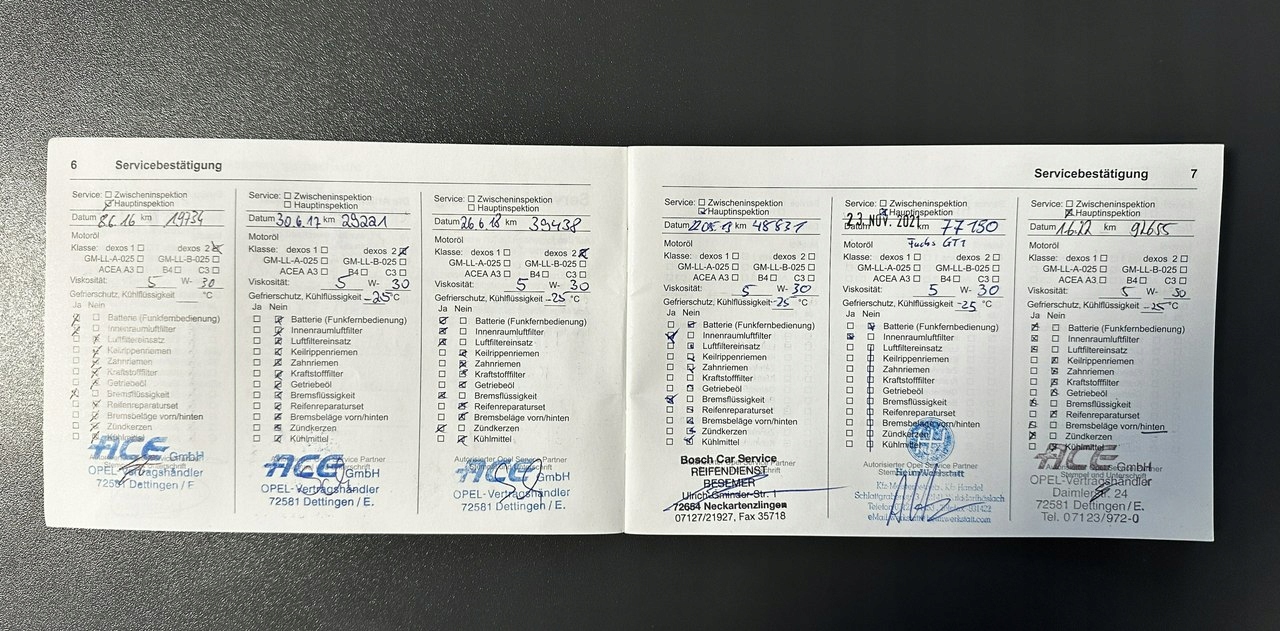 6 Servicebestätigung
Service: Zwischeninspektion
Hauptinspektion
Datum 8.6.16 km 19734
Motoröl
Klasse: dexos 1 dexos 2
GM-LL-A-025 GM-LL-B-025
ACEA A3 B4 C3
Viskosität: 5 W- 30
Gefrierschutz, Kühlflüssigkeit °C
Ja Nein
Batterie (Funkfernbedienung)
Innenraumluftfilter
Luftfiltereinsatz
Keilrippenriemen
Zahnriemen
Kraftstofffilter
Getriebeöl
Bremsflüssigkeit
Reifenreparaturset
Bremsbeläge vorn/hinten
Zündkerzen
Kühlmittel
ACE GmbH
OPEL-Vertragshändler
72581 Dettingen / E.
Service: Zwischeninspektion
Hauptinspektion
Datum 30.6.17 km 29221
Motoröl
Klasse: dexos 1 dexos 2
GM-LL-A-025 GM-LL-B-025
ACEA A3 B4 C3
Viskosität: 5 W- 30
Gefrierschutz, Kühlflüssigkeit -25°C
Ja Nein
Batterie (Funkfernbedienung)
Innenraumluftfilter
Luftfiltereinsatz
Keilrippenriemen
Zahnriemen
Kraftstofffilter
Getriebeöl
Bremsflüssigkeit
Reifenreparaturset
Bremsbeläge vorn/hinten
Zündkerzen
Kühlmittel
ACE GmbH
OPEL-Vertragshändler
72581 Dettingen / E.
Service: Zwischeninspektion
Hauptinspektion
Datum 26.6.18 km 39438
Motoröl
Klasse: dexos 1 dexos 2
GM-LL-A-025 GM-LL-B-025
ACEA A3 B4 C3
Viskosität: 5 W- 30
Gefrierschutz, Kühlflüssigkeit -25°C
Ja Nein
Batterie (Funkfernbedienung)
Innenraumluftfilter
Luftfiltereinsatz
Keilrippenriemen
Zahnriemen
Kraftstofffilter
Getriebeöl
Bremsflüssigkeit
Reifenreparaturset
Bremsbeläge vorn/hinten
Zündkerzen
Kühlmittel
Autorisierter Opel Service Partner
ACE GmbH
OPEL-Vertragshändler
72581 Dettingen / E.
Servicebestätigung 7
Service: Zwischeninspektion
Hauptinspektion
Datum km 48831
Motoröl
Klasse: dexos 1 dexos 2
GM-LL-A-025 GM-LL-B-025
ACEA A3 B4 C3
Viskosität: 5 W- 30
Gefrierschutz, Kühlflüssigkeit -25 °C
Ja Nein
Batterie (Funkfernbedienung)
Innenraumluftfilter
Luftfiltereinsatz
Keilrippenriemen
Zahnriemen
Kraftstofffilter
Getriebeöl
Bremsflüssigkeit
Reifenreparaturset
Bremsbeläge vorn/hinten
Zündkerzen
Kühlmittel
Bosch Car Service
REIFENDIENST
BESEMER
Ulrich-Gminder-Str. 1
72654 Neckartenzlingen
07127/21927, Fax 35718
Service: Zwischeninspektion
Hauptinspektion
23. NOV. 2021
Datum km 77150
Motoröl Fuchs GT1
Klasse: dexos 1 dexos 2
GM-LL-A-025 GM-LL-B-025
ACEA A3 B4 C3
Viskosität: 5 W- 30
Gefrierschutz, Kühlflüssigkeit -25 °C
Ja Nein
Batterie (Funkfernbedienung)
Innenraumluftfilter
Luftfiltereinsatz
Keilrippenriemen
Zahnriemen
Kraftstofffilter
Getriebeöl
Bremsflüssigkeit
Reifenreparaturset
Bremsbeläge vorn/hinten
Zündkerzen
Kühlmittel
Autorisierter Opel Service Partner
Service: Zwischeninspektion
Hauptinspektion
Datum km 92655
Motoröl
Klasse: dexos 1 dexos 2
GM-LL-A-025 GM-LL-B-025
ACEA A3 B4 C3
Viskosität: 5 W- 30
Gefrierschutz, Kühlflüssigkeit -25°C
Ja Nein
Batterie (Funkfernbedienung)
Innenraumluftfilter
Luftfiltereinsatz
Keilrippenriemen
Zahnriemen
Kraftstofffilter
Getriebeöl
Bremsflüssigkeit
Reifenreparaturset
Bremsbeläge vorn/hinten
Zündkerzen
Kühlmittel
ACE GmbH
Stempel und Unterschrift
OPEL-Vertragshändler
Daimlerstr. 24
72581 Dettingen / E.
Tel. 07123/972-0